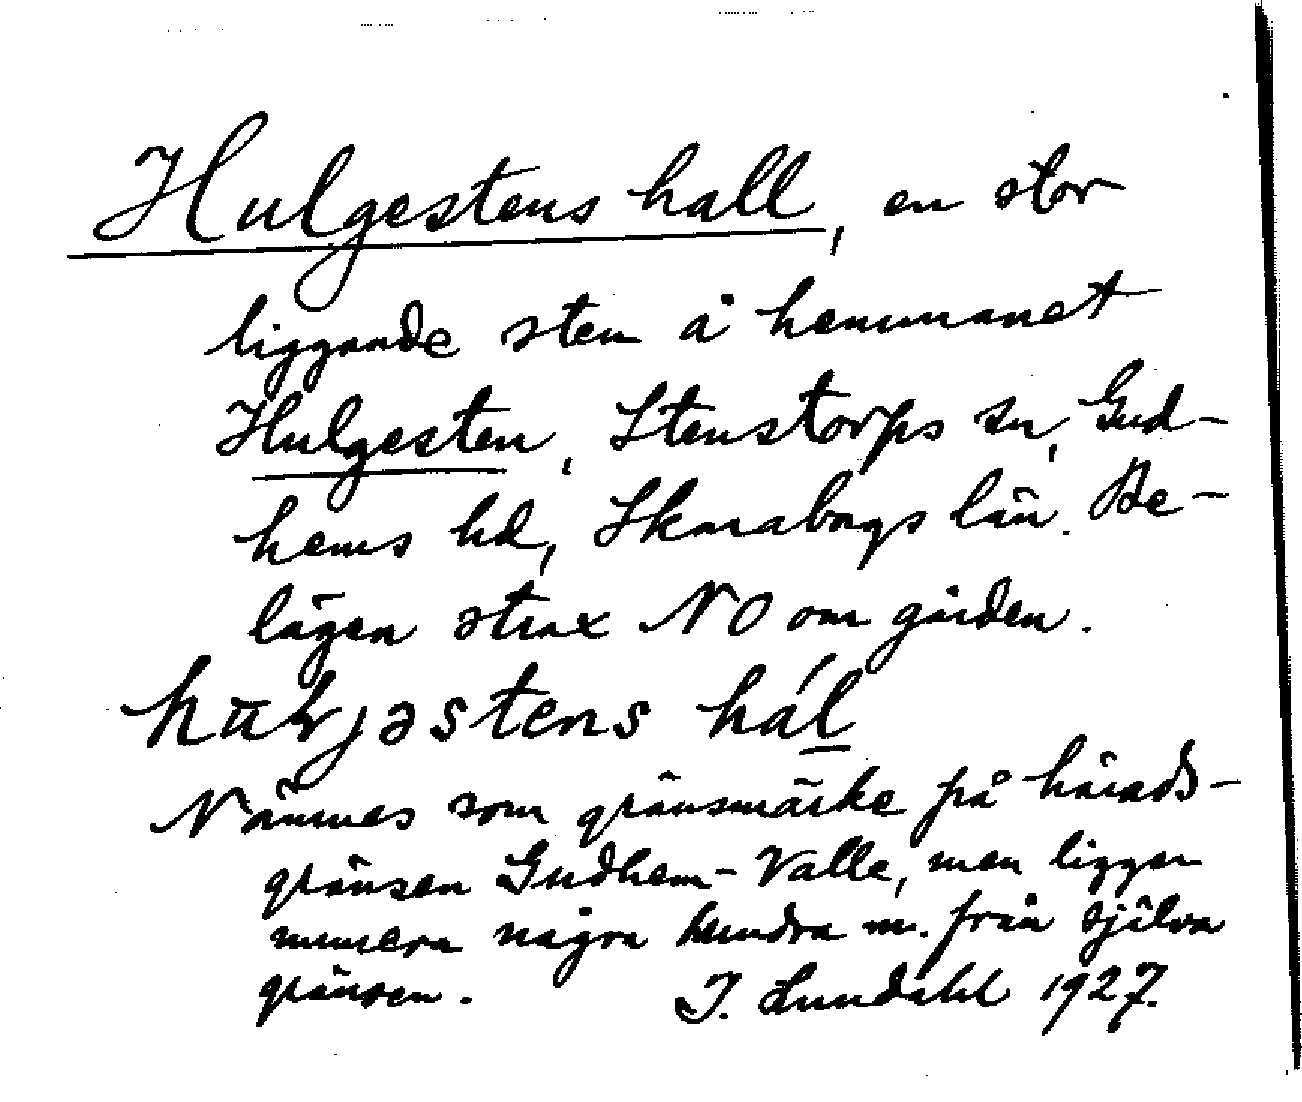 Hulgestens hall, en stor
liggande sten å hemmanet
Hulgesten, Stenstorps sn, Gud-
hems hd, Skaraborgs län. Be-
lägen strax NO om gården.
hästens hál
Nämnes som gränsmärke på härads-
gränsen Gudhem-Valle, men ligger
numera några hundra m. från själva
gränsen. I. Lundahl 1927.